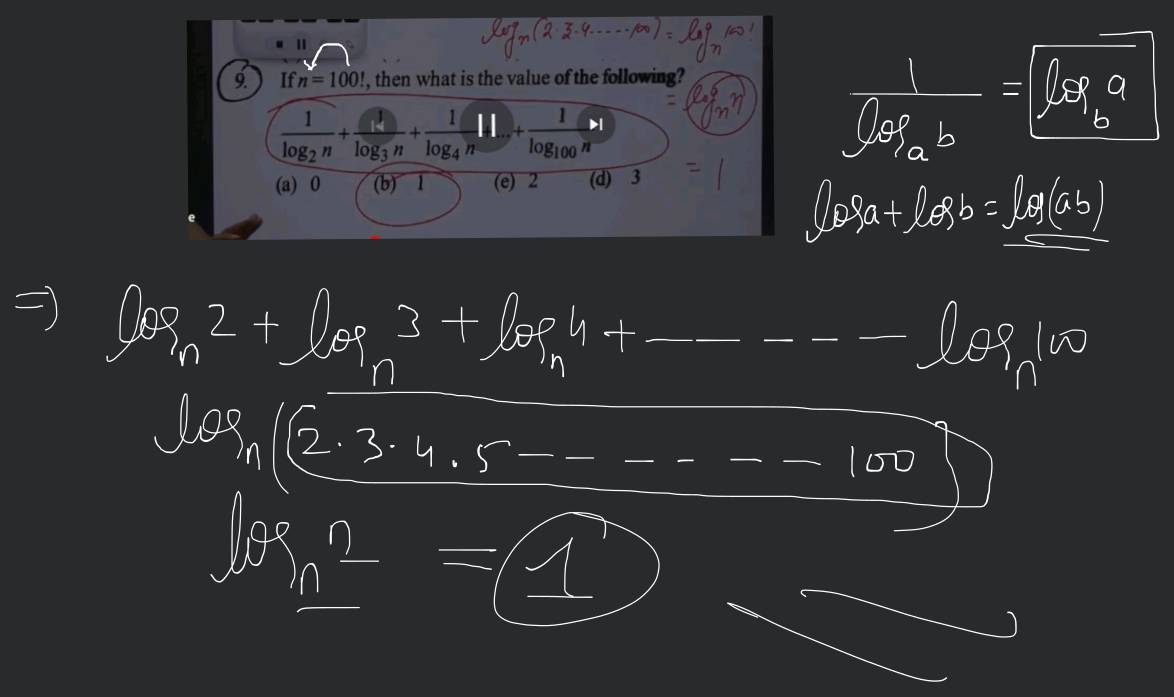 logₙ(2·3·4.....100) = logₙ 100!
9. If n = 100!, then what is the value of the following?
= logₙ n
1/log₂ n + 1/log₃ n + 1/log₄ n +...+ 1/log₁₀₀ n
= 1
(a) 0 (b) 1 (e) 2 (d) 3
e
1/logₐ b = log_b a
log a + log b = log(ab)
=> logₙ 2 + logₙ 3 + logₙ 4 + ------ logₙ 100
logₙ (2·3·4.5------- 100)
logₙ n = 1